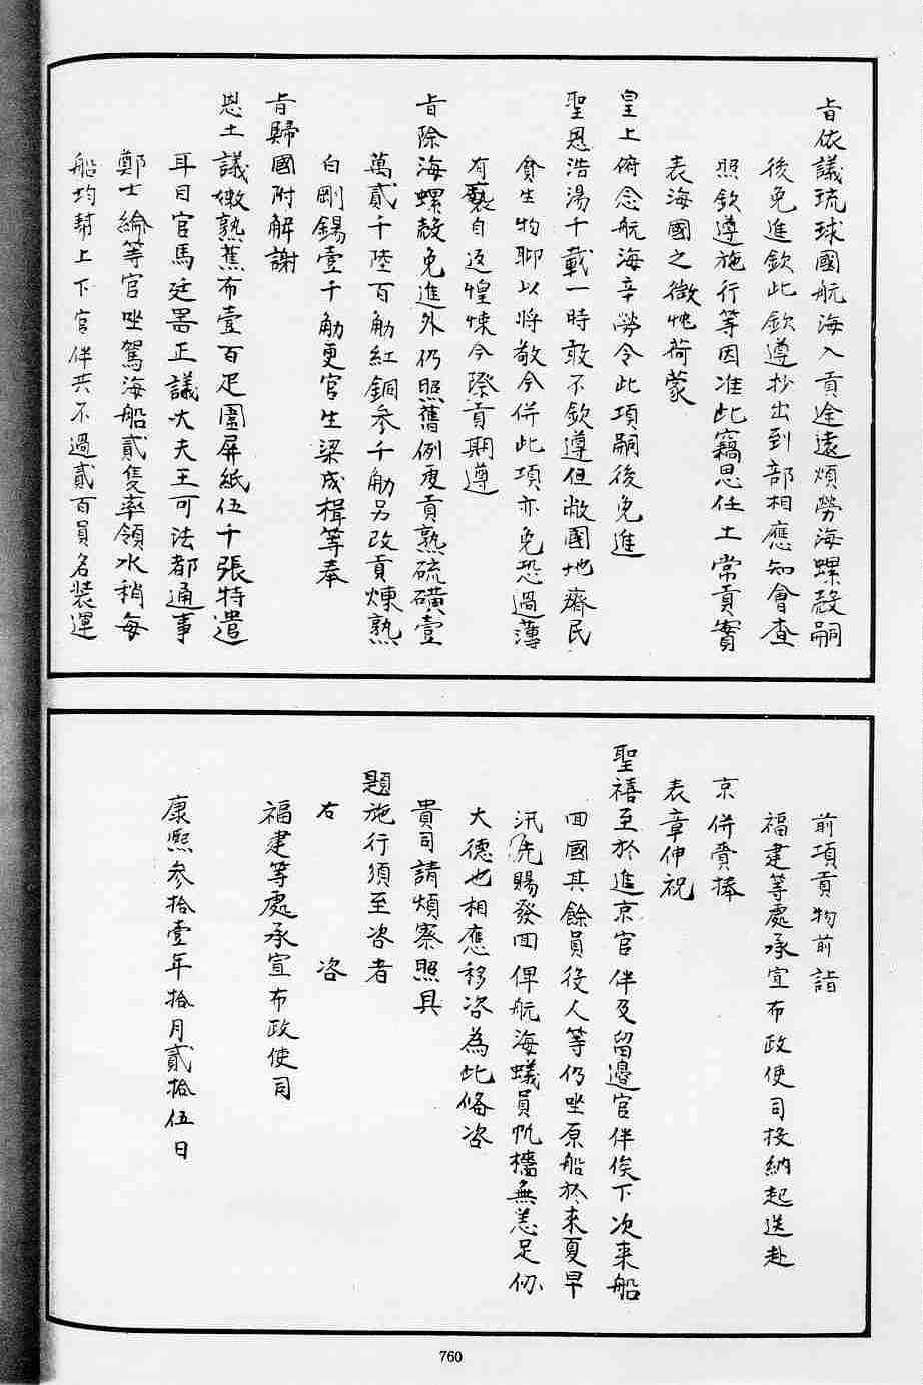 旨依議琉球國航海入貢途遠煩勞海螺殼嗣
後免進欽此欽遵抄出到部相應知會查
照欽遵施行等因准此竊思任土常貢實
表海國之微忱荷蒙
皇上俯念航海辛勞令此項嗣後免進
聖恩浩湯千載一時敢不欽遵但敝國地瘠民
貧生物聊以將敬今併此項亦免恐過薄
有褻自返惶悚今際貢期遵
旨除海螺殼免進外仍照舊例更貢熟硫磺壹
萬貳千陸百觔紅銅参千觔另改貢煉熟
白剛錫壹千觔更官生梁成楫等奉
旨歸國附解謝
恩土議嫩熟蕉布壹百疋圍屏紙伍千張特遣
耳目官馬廷器正議大夫王可法都通事
鄭士綸等官坐駕海船貳隻率領水稍每
船均幇上下官伴共不過貳百員名裝運
前項貢物前詣
福建等處承宣布政使司投納起送赴
京併賫捧
表章伸祝
聖禧至於進京官伴及留邊官伴俟下次來船
回國其餘員役人等仍坐原船於來夏早
汛先賜發回俾航海蟻員帆檣無恙足仞
大德也相應移咨為此備咨
貴司請煩察照具
題施行須至咨者
右　咨
福建等處承宣布政使司
康熙参拾壹年拾月貳拾伍日
760